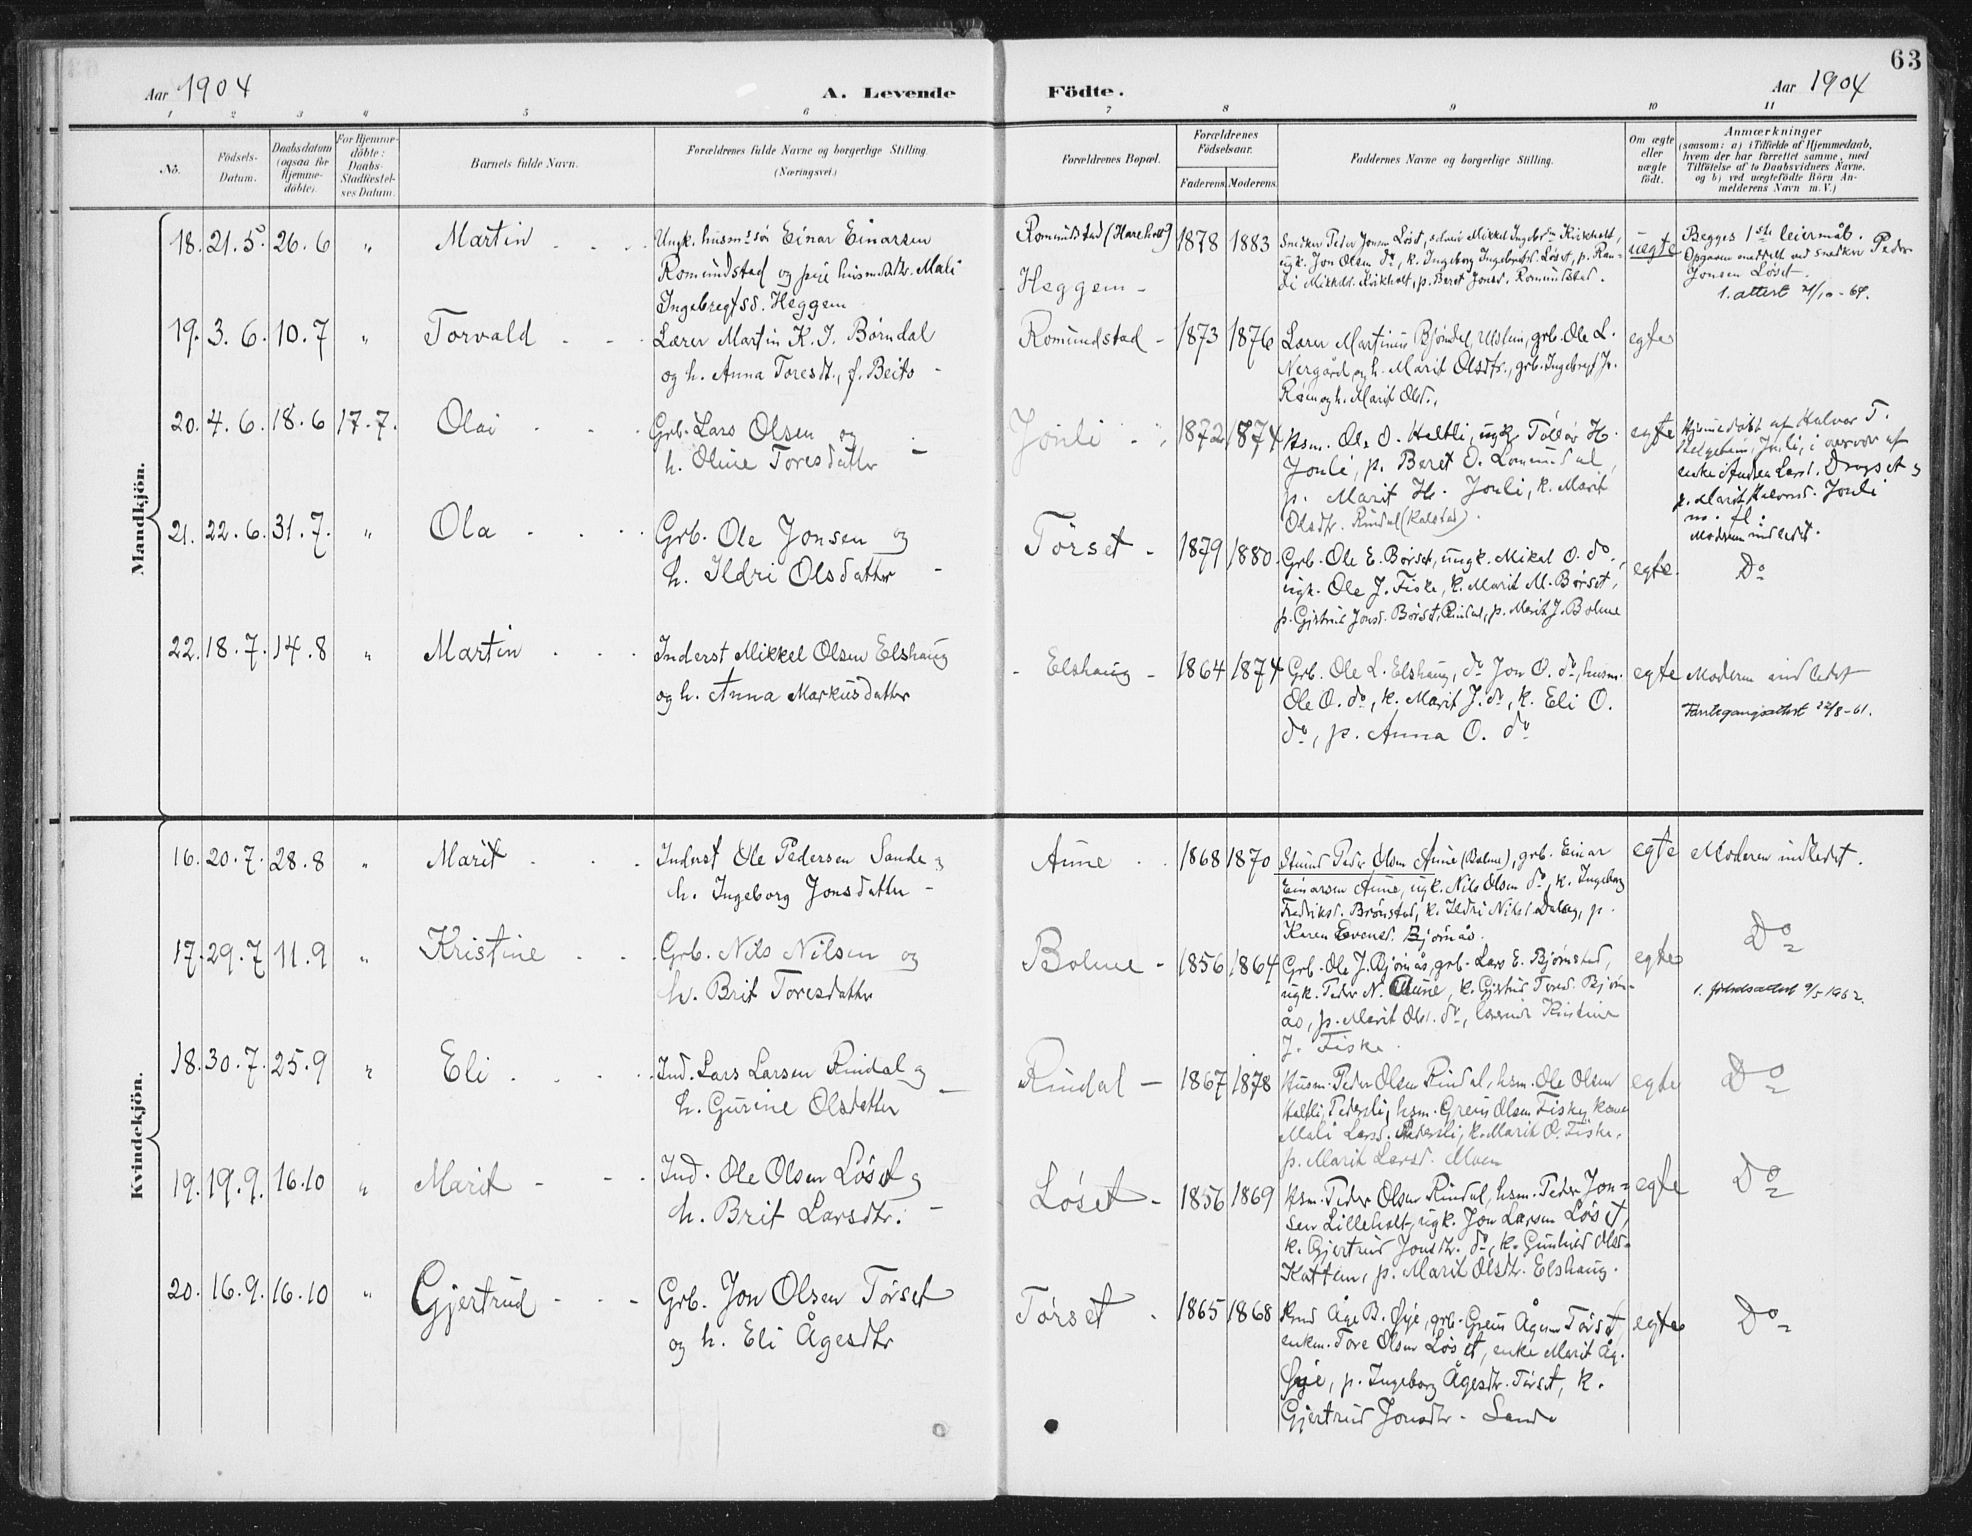 63
Aar 1904
A. Levende Födte.
Aar 1904
1 2 3 4 5 6 7 8 9 10 11
No.
Födsels-
Datum.
Daabsdatum
(ogsaa for
Hjemme-
döbte).
For Hjemme-
döbte:
Daabs-
Stadfæstel-
ses Datum.
Barnets fulde Navn.
Forældrenes fulde Navne og borgerlige Stilling.
(Næringsvei.)
Forældrenes Bopæl.
Forældrenes
Födselsaar.
Faderens. Moderens.
Faddernes Navne og borgerlige Stilling.
Om ægte
eller
uægte
födt.
Anmærkninger
(saasom: a) i Tilfælde af Hjemmedaab,
hvem der har forrettet samme, med
Tilföielse af to Daabsvidners Navne,
og b) ved uægtefödte Börn An-
melderens Navn m. V.)
Mandkjön.
18. 21.5. 26.6 " Martin
Ungk. husm.s sön Einar Einarsen
Romundstad og pige husmdtr. Mali
Ingebregtsd. Heggem
Romundstad (Hareholt)
Heggem
1878 1883
Snedker Peder Jonsen Löset,
ugk. Jon Olsen do, k. Ingeborg Ingebretsd. Löset, p. Ran-
di Mikkelsd. Kirkholt, p. Beret Jonsd. Romundstad.
uægte
Begges 1ste leiermål.
Opgaven meddelt ved snedker Peder
Jonsen Löset.
1. attest 21/10-64.
19. 3.6. 10.7 " Torvald
Lærer Martin K. J. Börndal
og h. Anna Toresdt., f. Beito
Romundstad
1873 1876
Lærer Martinus Bjöndal, Ulstein, grb. Ole L.
Nergård og h. Marit Olsdtr., grb. Ingebregt J.
Röen og h. Marit Olsd.
egte
20. 4.6. 18.6 17.7. Olai
Grb. Lars Olsen og
h. Oline Toresdatter
Jönli
1872 1874
Hsm. Ole O. Heltli, ugk. Tollev H.
Jönli, p. Beret O. Lomundal,
p. Marit H. Jönli, k. Marit
Olsdtr. Rindal (Kalstad).
egte
Hjemmedöbt af Halvor T.
Helgetun, Jönli, i nærvær af
enke Andrea Larsd. Drogset og
p. Marit Halvorsd. Jönli
m. fl.
Moderen indledet.
21. 22.6. 31.7. " Ola
Grb. Ole Jonsen og
h. Ildri Olsdatter
Törset
1879 1880
Grb. Ole E. Börset, ungk. Mikal O. do,
ugk. Ole J. Fiske, k. Marit M. Börset,
p. Gjertrud Jonsd. Börset, Rindal, p. Marit J. Bolme
egte.
Do
22. 18.7. 14.8 " Martin
Inderst Mikkel Olsen Elshaug
og h. Anna Markusdatter
Elshaug
1864 1874
Grb. Ole L. Elshaug, do Jon O. do, husm.
Ole O. do, k. Marit J. do, k. Eli O.
do, p. Anna O. do
egte
Moderen indledet
22/8-61.
Kvindekjön.
16. 20.7. 28.8 " Marit
Inderst Ole Pedersen Sande og
h. Ingeborg Jonsdatter
Aune
1868 1870
Stund. Peder Olsen Aune (Bolme), grb. Einar
Einarsen Aune, ugk. Nils Olsen do, k. Ingeborg
Fredriksd. Brönstad, k. Ildri Nilsd. Dalseg, p.
Karen Evensd. Björnås.
egte
Moderen indledet.
17. 29.7 11.9 " Kristine
Grb. Nils Nilsen og
h. Brit Toresdatter
Bolme
1856 1864
Grb. Ole J. Björnås, grb. Lars E. Björnstad,
ugk. Peder N. Aune, k. Gjertrud Toresd. Björn-
ås, p. Marit Olsd. do, lærerinde Kristine
J. Fiske.
egte
Do
1. fødselsattest 9/5 1962.
18. 30.7. 25.9 " Eli
Ind. Lars Larsen Rindal og
h. Gurine Olsdatter
Rindal
1867 1878
Husm. Peder Olsen Rindal, hsm. Ole Olsen
Heltli, Pedersli, hsm. Greius Olsen Fiske, kone
Mali Larsd. Pedersli, k. Marit O. Fiske,
p. Marit Larsd. Moen
egte
Do
19. 19.9. 16.10 " Marit
Ind. Ole Olsen Löset og
h. Brit Larsdtr.
Löset
1856 1869
Hsm. Peder Olsen Rindal, hsm. Peder Jon-
sen Lilleholt, ugk. Jon Larsen Löset,
k. Gjertrud Jonsdtr. do, k. Gunhild Olsd.
Kattem, p. Marit Olsdtr. Elshaug.
egte
Do
20. 16.9. 16.10 " Gjertrud
Grb. Jon Olsen Törset
og h. Eli Ågesdtr
Törset
1865 1868
Knud Åge B. Öye, grb. Greius Ågesen Törset,
enkem. Tore Olsen Löset, enke Marit Åg.
Öye, p. Ingeborg Ågesdtr. Törset, k.
Gjertrud Jonsdtr. Sande
egte
Do